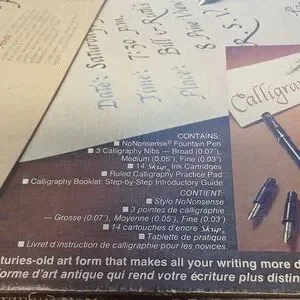 Date: Saturday
Time: 7:30 p.m.
Place:
R.S.
Calligra
CONTAINS:
■ NoNonsense® Fountain Pen
■ 3 Calligraphy Nibs — Broad (0.07"),
Medium (0.05"), Fine (0.03")
■ 14 Skrip® Ink Cartridges
■ Ruled Calligraphy Practice Pad
■ Calligraphy Booklet: Step-by-Step Introductory Guide
CONTIENT:
■ Stylo NoNonsense
■ 3 pointes de calligraphie
— Grosse (0.07"), Moyenne (0.05"), Fine (0.03")
■ 14 cartouches d'encre Skrip®
■ Tablette de pratique
■ Livret d'instruction de calligraphie pour les novices.
turies-old art form that makes all your writing more d
orme d'art antique qui rend votre écriture plus distin